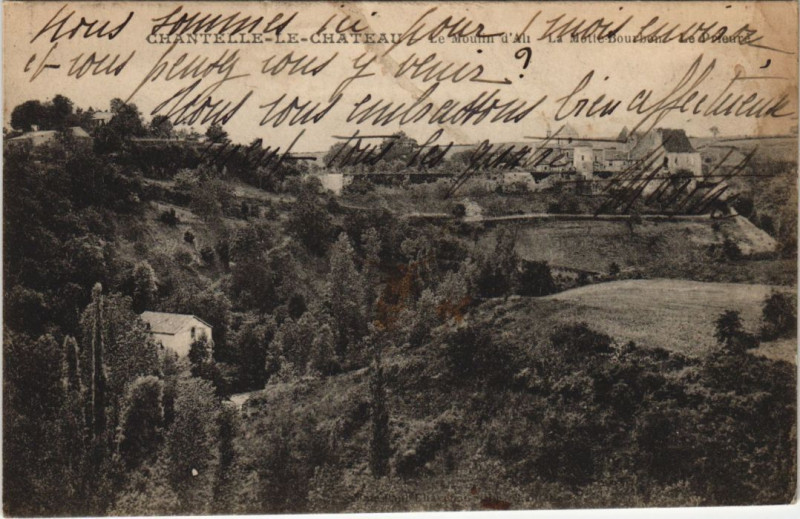 Nous sommes ici pour 1 mois environ
CHANTELLE-LE-CHATEAU Le Moulin d'Ah La Motte Bourbon Le Prieuré
et vous pensez vous y venir?
Nous vous embrassons bien affectueuse
ment tous les quatre